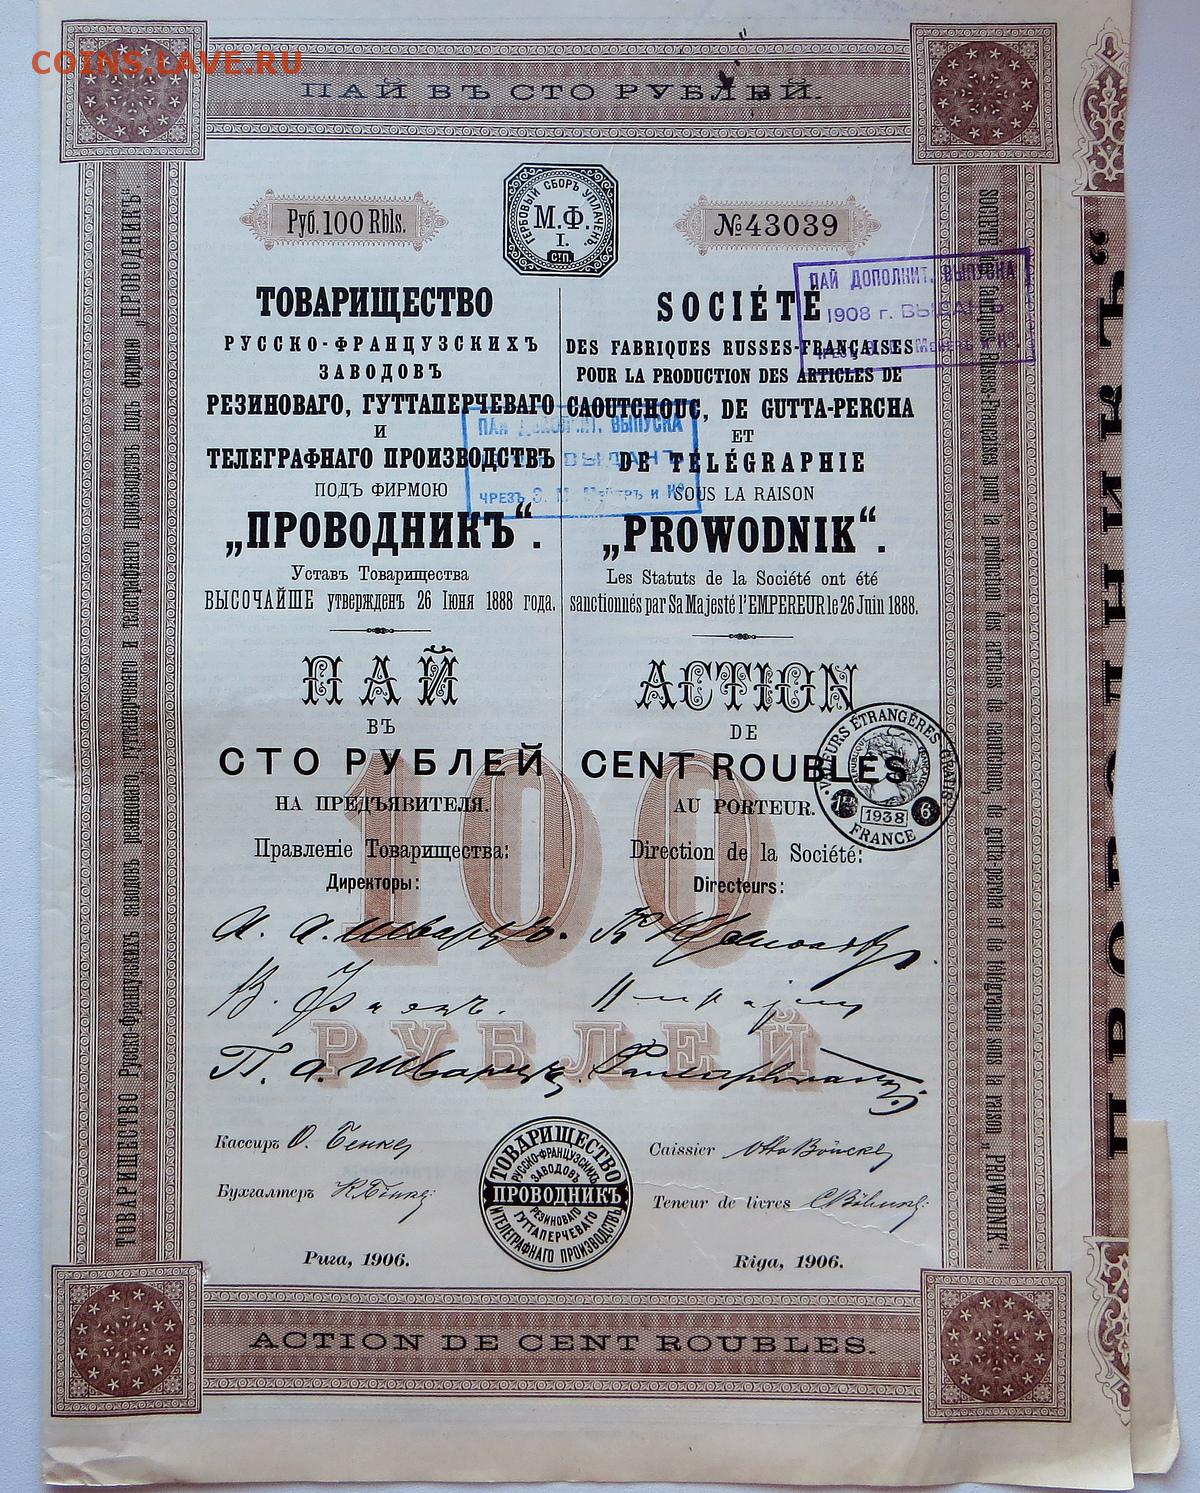 COINS.LAVE.RU
ПАЙ ВЪ СТО РУБЛЕЙ.
Руб. 100 Rbls.
ГЕРБОВЫЙ СБОРЪ УПЛАЧЕНЪ.
М.Ф.
I.
СТП.
№43039
ПАЙ ДОПОЛНИТ. ВЫПУСКА
1908 г. ВЫДАНЪ
ТОВАРИЩЕСТВО
РУССКО-ФРАНЦУЗСКИХЪ
ЗАВОДОВЪ
РЕЗИНОВАГО, ГУТТАПЕРЧЕВАГО
И
ТЕЛЕГРАФНАГО ПРОИЗВОДСТВЪ
ПОДЪ ФИРМОЮ
„ПРОВОДНИКЪ“.
Уставъ Товарищества
ВЫСОЧАЙШЕ утвержденъ 26 Iюня 1888 года.
ПАЙ
ВЪ
СТО РУБЛЕЙ
НА ПРЕДЪЯВИТЕЛЯ.
Правленіе Товарищества:
Директоры:
SOCIÉTÉ
DES FABRIQUES RUSSES-FRANÇAISES
POUR LA PRODUCTION DES ARTICLES DE
CAOUTCHOUC, DE GUTTA-PERCHA
ET
DE TÉLÉGRAPHIE
SOUS LA RAISON
„PROWODNIK“.
Les Statuts de la Société ont été
sanctionnés par Sa Majesté l'EMPEREUR le 26 Juin 1888.
ACTION
DE
CENT ROUBLES
AU PORTEUR.
Direction de la Société:
Directeurs:
ПАЙ ДОПОЛНИТ. ВЫПУСКА
ВЫДАНЪ
ЧРЕЗЪ Э. М. Мейеръ и Ко
VALEURS ÉTRANGÈRES
1938
6
FRANCE
100
РУБЛЕЙ
А. А. Шварцъ.
П. А. Шварцъ.
Кассиръ
Бухгалтеръ
Рига, 1906.
Caissier
Teneur de livres
Riga, 1906.
ТОВАРИЩЕСТВО
РУССКО-ФРАНЦУЗСКИХЪ
ЗАВОДОВЪ
ПРОВОДНИКЪ
РЕЗИНОВАГО
ГУТТАПЕРЧЕВАГО
И ТЕЛЕГРАФНАГО ПРОИЗВОДСТВЪ
ACTION DE CENT ROUBLES.
ТОВАРИЩЕСТВО Русско-Французскихъ заводовъ резиноваго, гуттаперчеваго и телеграфнаго производствъ подъ фирмою „ПРОВОДНИКЪ“
SOCIÉTÉ des fabriques Russes-Françaises pour la production des articles de caoutchouc, de gutta-percha et de télégraphie sous la raison „PROWODNIK“.
ПРОВОДНИКЪ“